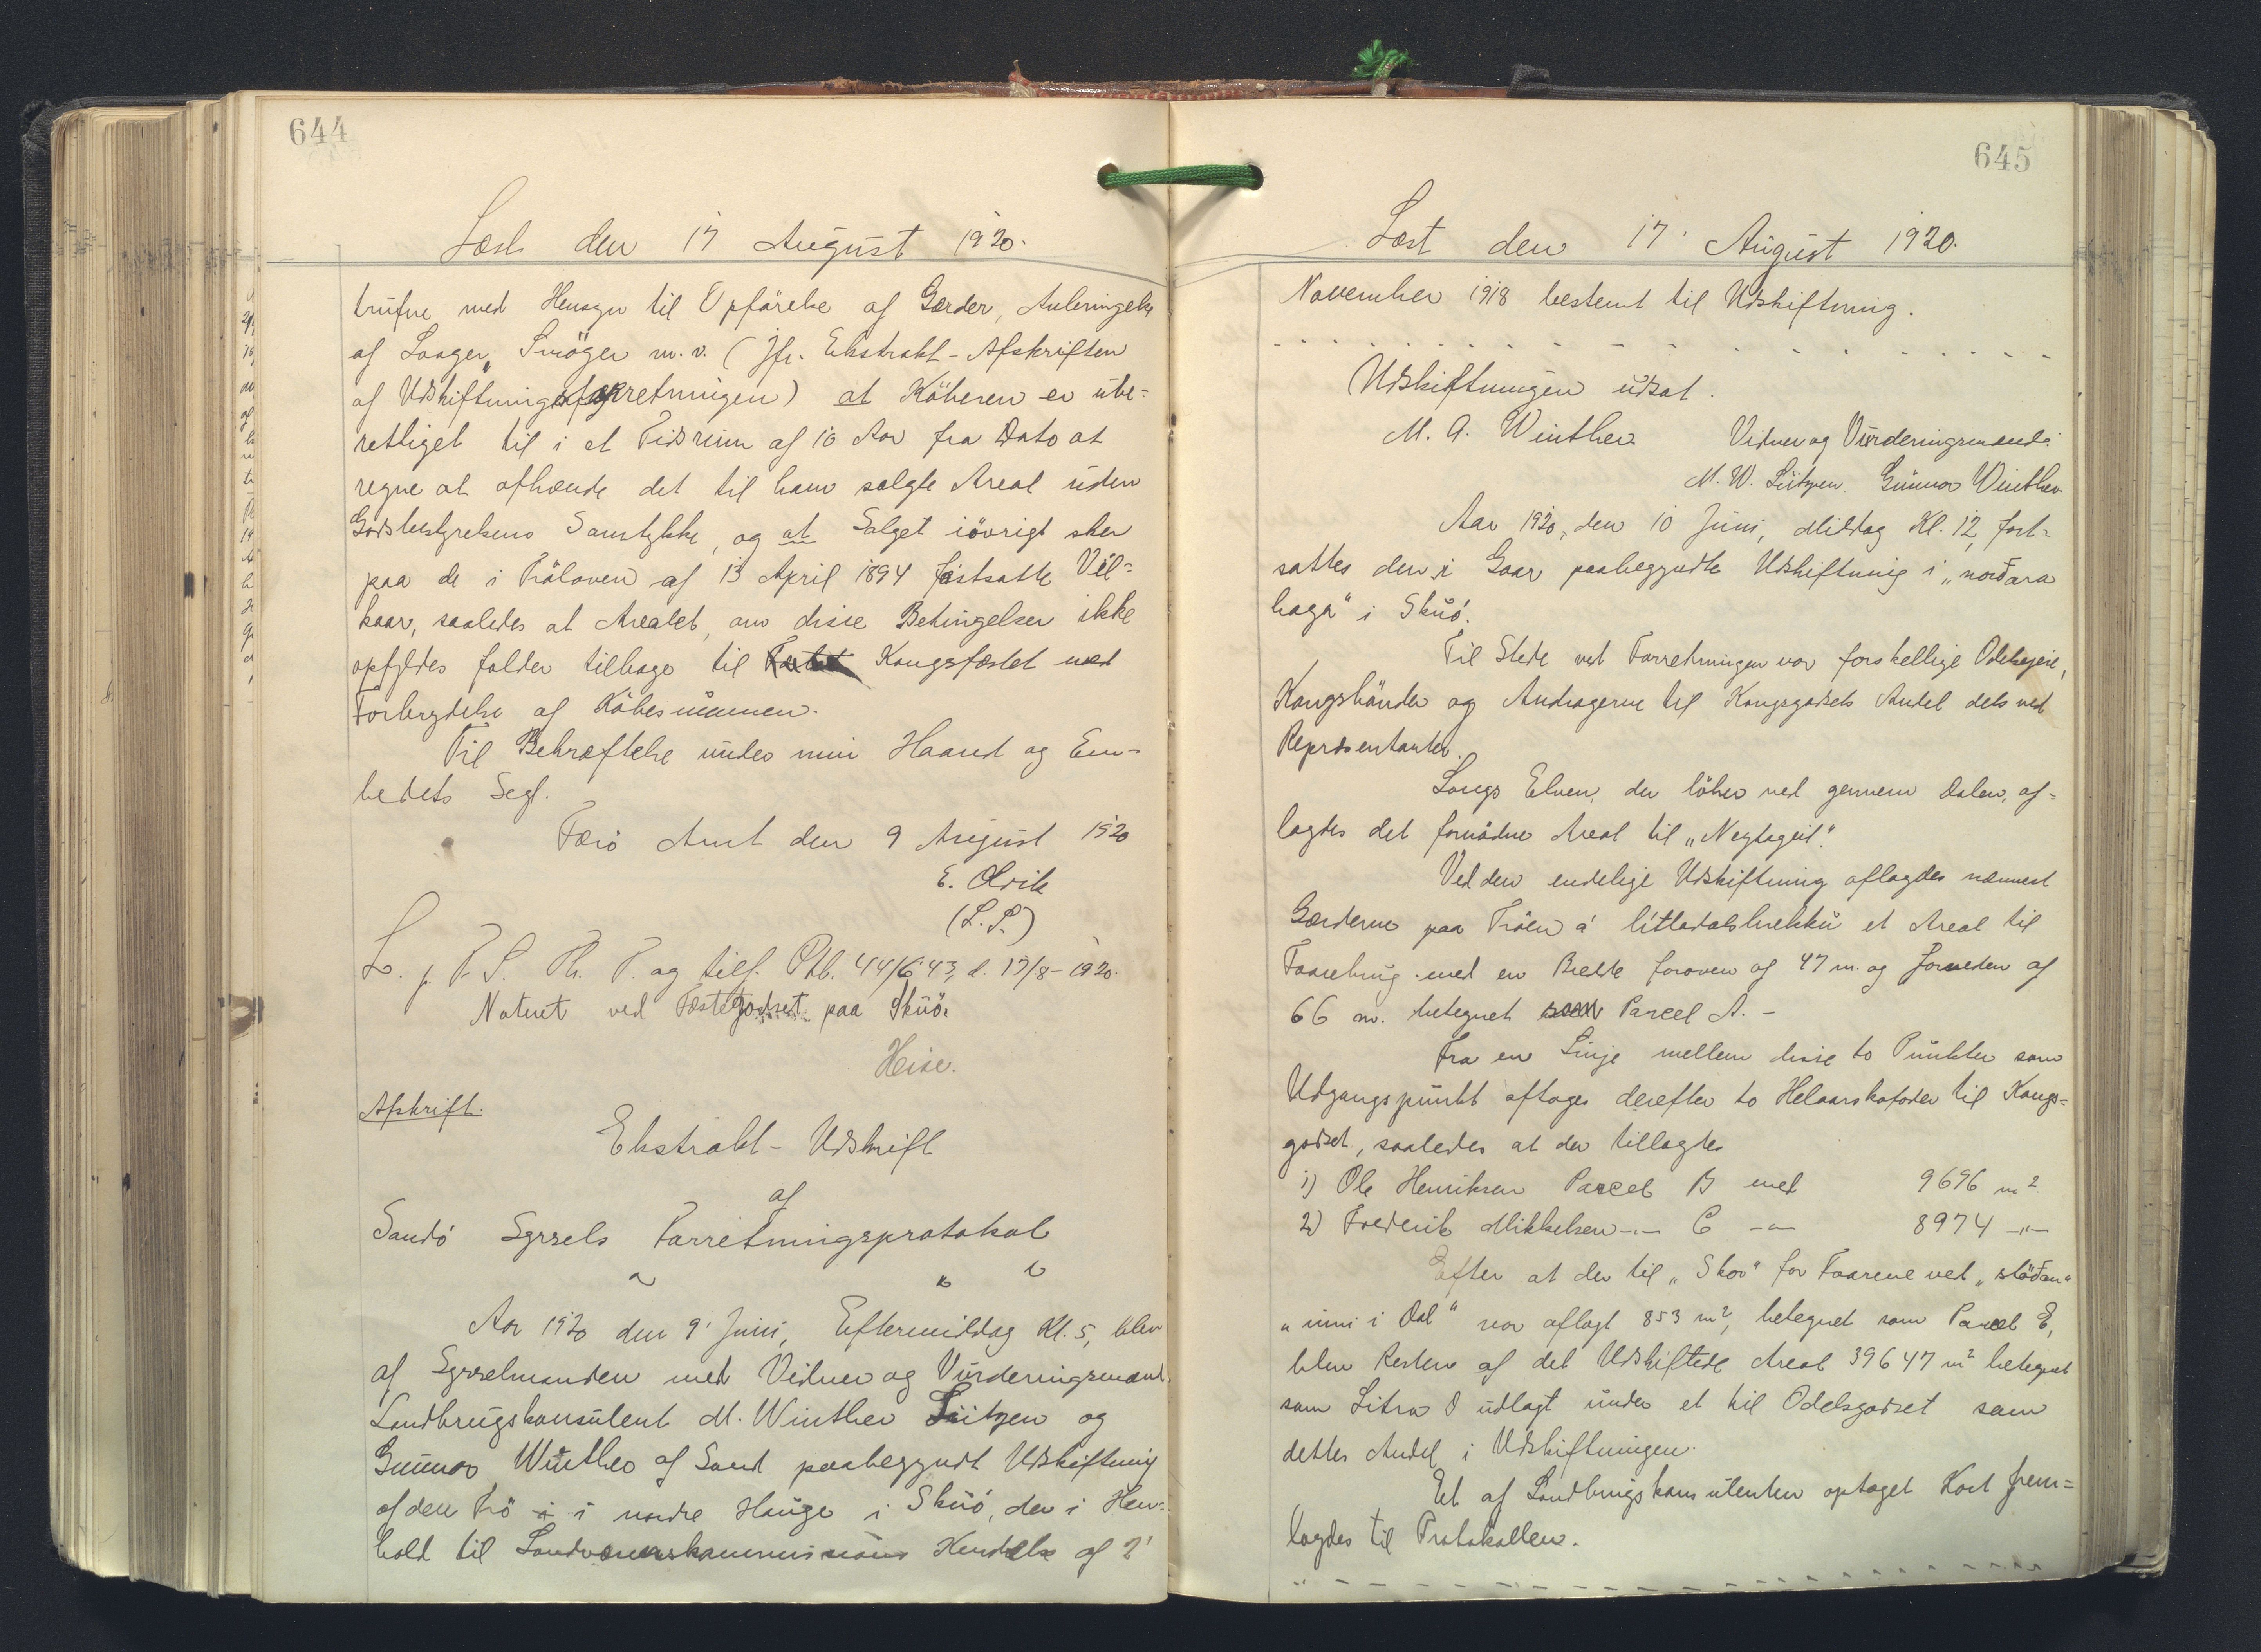 644
Læst den 17 August 1920.
trufne med Hensyn til Opførelse af Gærder, Anbringelse
af Laager, Smøger m.v. (jfr. Ekstrakt-Afskriften
af Udskiftningsforretningen) at Köberen er übe=
rettiget til i et Tidsrum af 10 Aar fra Dato at
regne at afhænde det til ham solgte Areal uden
Godsbestyrelsens Samtykke, og at Salget iövrigt sker
paa de i Tröloven af 13 April 1894 fastsatte Vil=
kaar, saaledes at Arealet, om disse Betingelser ikke
opfyldes falder tilbage til Kongsfæstet med
Forbrydelse af Köbesummen.
Til Bekræftelse under min Haand og Em-
bedets Segl.
Færö Amt den 9 August 1920
E. Olrik
(L.S.)
L. p. T. S. Th. P. og tilf. Ptb. 44/643, d. 17/8-1920.
Noteret ved Fæstegodset paa Skuö.
Heise.
Afskrift.
Ekstrakt-Udskrift
af
Sandö Syssels Forretningsprotokol
Aar 1920 den 9' Juni, Eftermiddag Kl. 5, blev
af Sysselmanden med Vidner og Vurderingsmænd
Landbrugskonsulent M. Winther Lützen og
Gunnar Winther af Sand paabegyndt Udskiftning
af den Trö i nordre Hauge i Skuö, der i Hen=
hold til Landvæsenskommissions Kendelse af 2'
645
Læst den 17' August 1920.
November 1918 bestemt til Udskiftning.
Udskiftningen udsat.
M. A. Winther Vidner og Vurderingsmænd:
M. W. Lützen. Gunnar Winther.
Aar 1920, den 10 Juni, Middag Kl. 12, fort=
sattes den i Gaar paabegyndte Udskiftning i „norðara
haga“ i Skuö.
Til Stede ved Forretningen var forskellige Odelsejere,
Kongsbönder og Andragerne til Kongsgodsets Andel dels ved
Repræsentanter.
Langs Elven, der löber ned gennem Dalen, af=
lagdes det fornödne Areal til „Neytageil“.
Ved den endelige Udskiftning aflagdes nærmest
Gærderne paa Tröen á lítladalsbrekku et Areal til
Faarebrug med en Bredde foroven af 47 m. og forneden af
66 m. betegnet som Parcel A. -
Fra en Linje mellem disse to Punkter som
Udgangspunkt aftages derefter to Helaarskofoder til Kongs=
godset, saaledes at der tillagtes
1) Ole Henriksen Parcel B med 9696 m²
2) Frederik Mikkelsen -"- C -"- 8974 -"-
Efter at der til „Skor“ for Faarene ved „stöðan“
„inni i Dal“ var aflagt 853 m², betegnet som Parcel E,
blev Resten af det Udskiftede Areal 39647 m² betegnet
som Litra D udlagt under et til Odelsgodset som
dettes Andel i Udskiftningen.
Et af Landbrugskonsulenten optaget Kort frem=
lagdes til Protokollen.